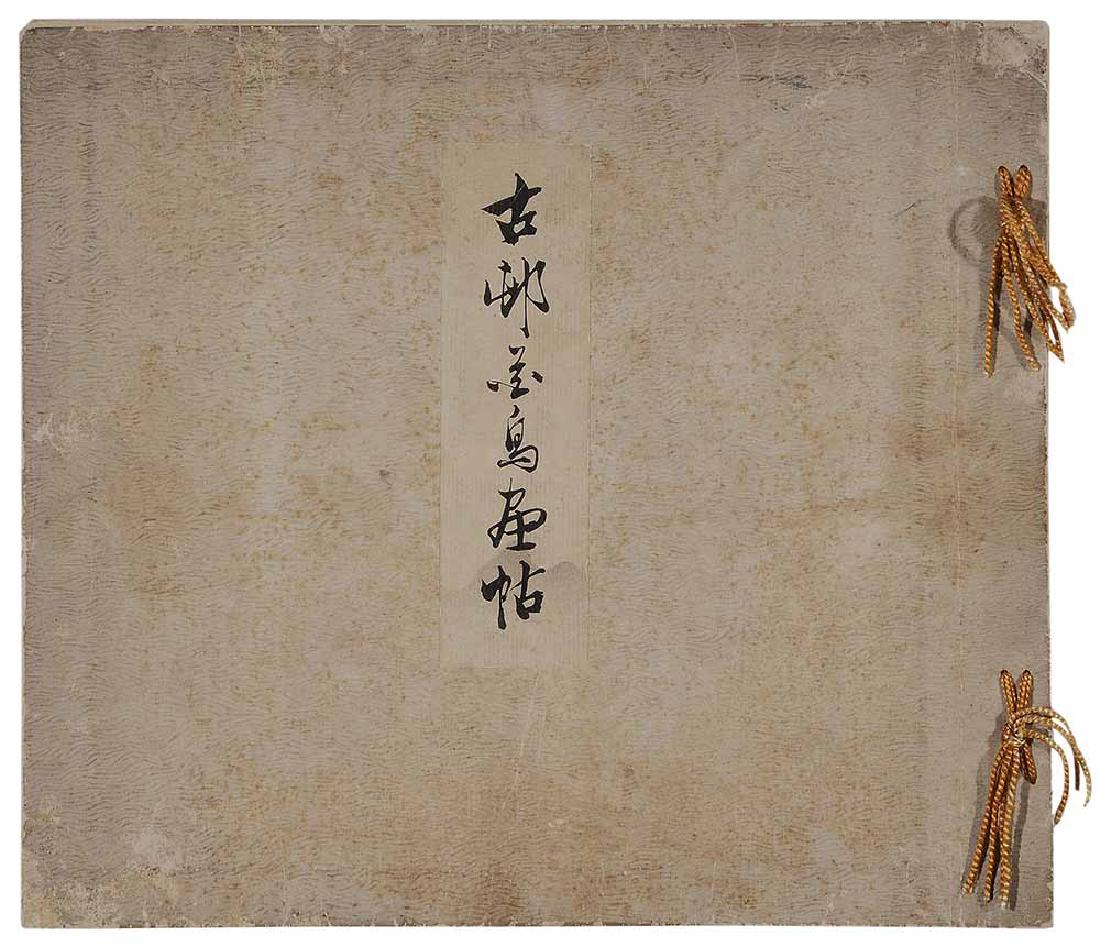 古邨花鳥画帖